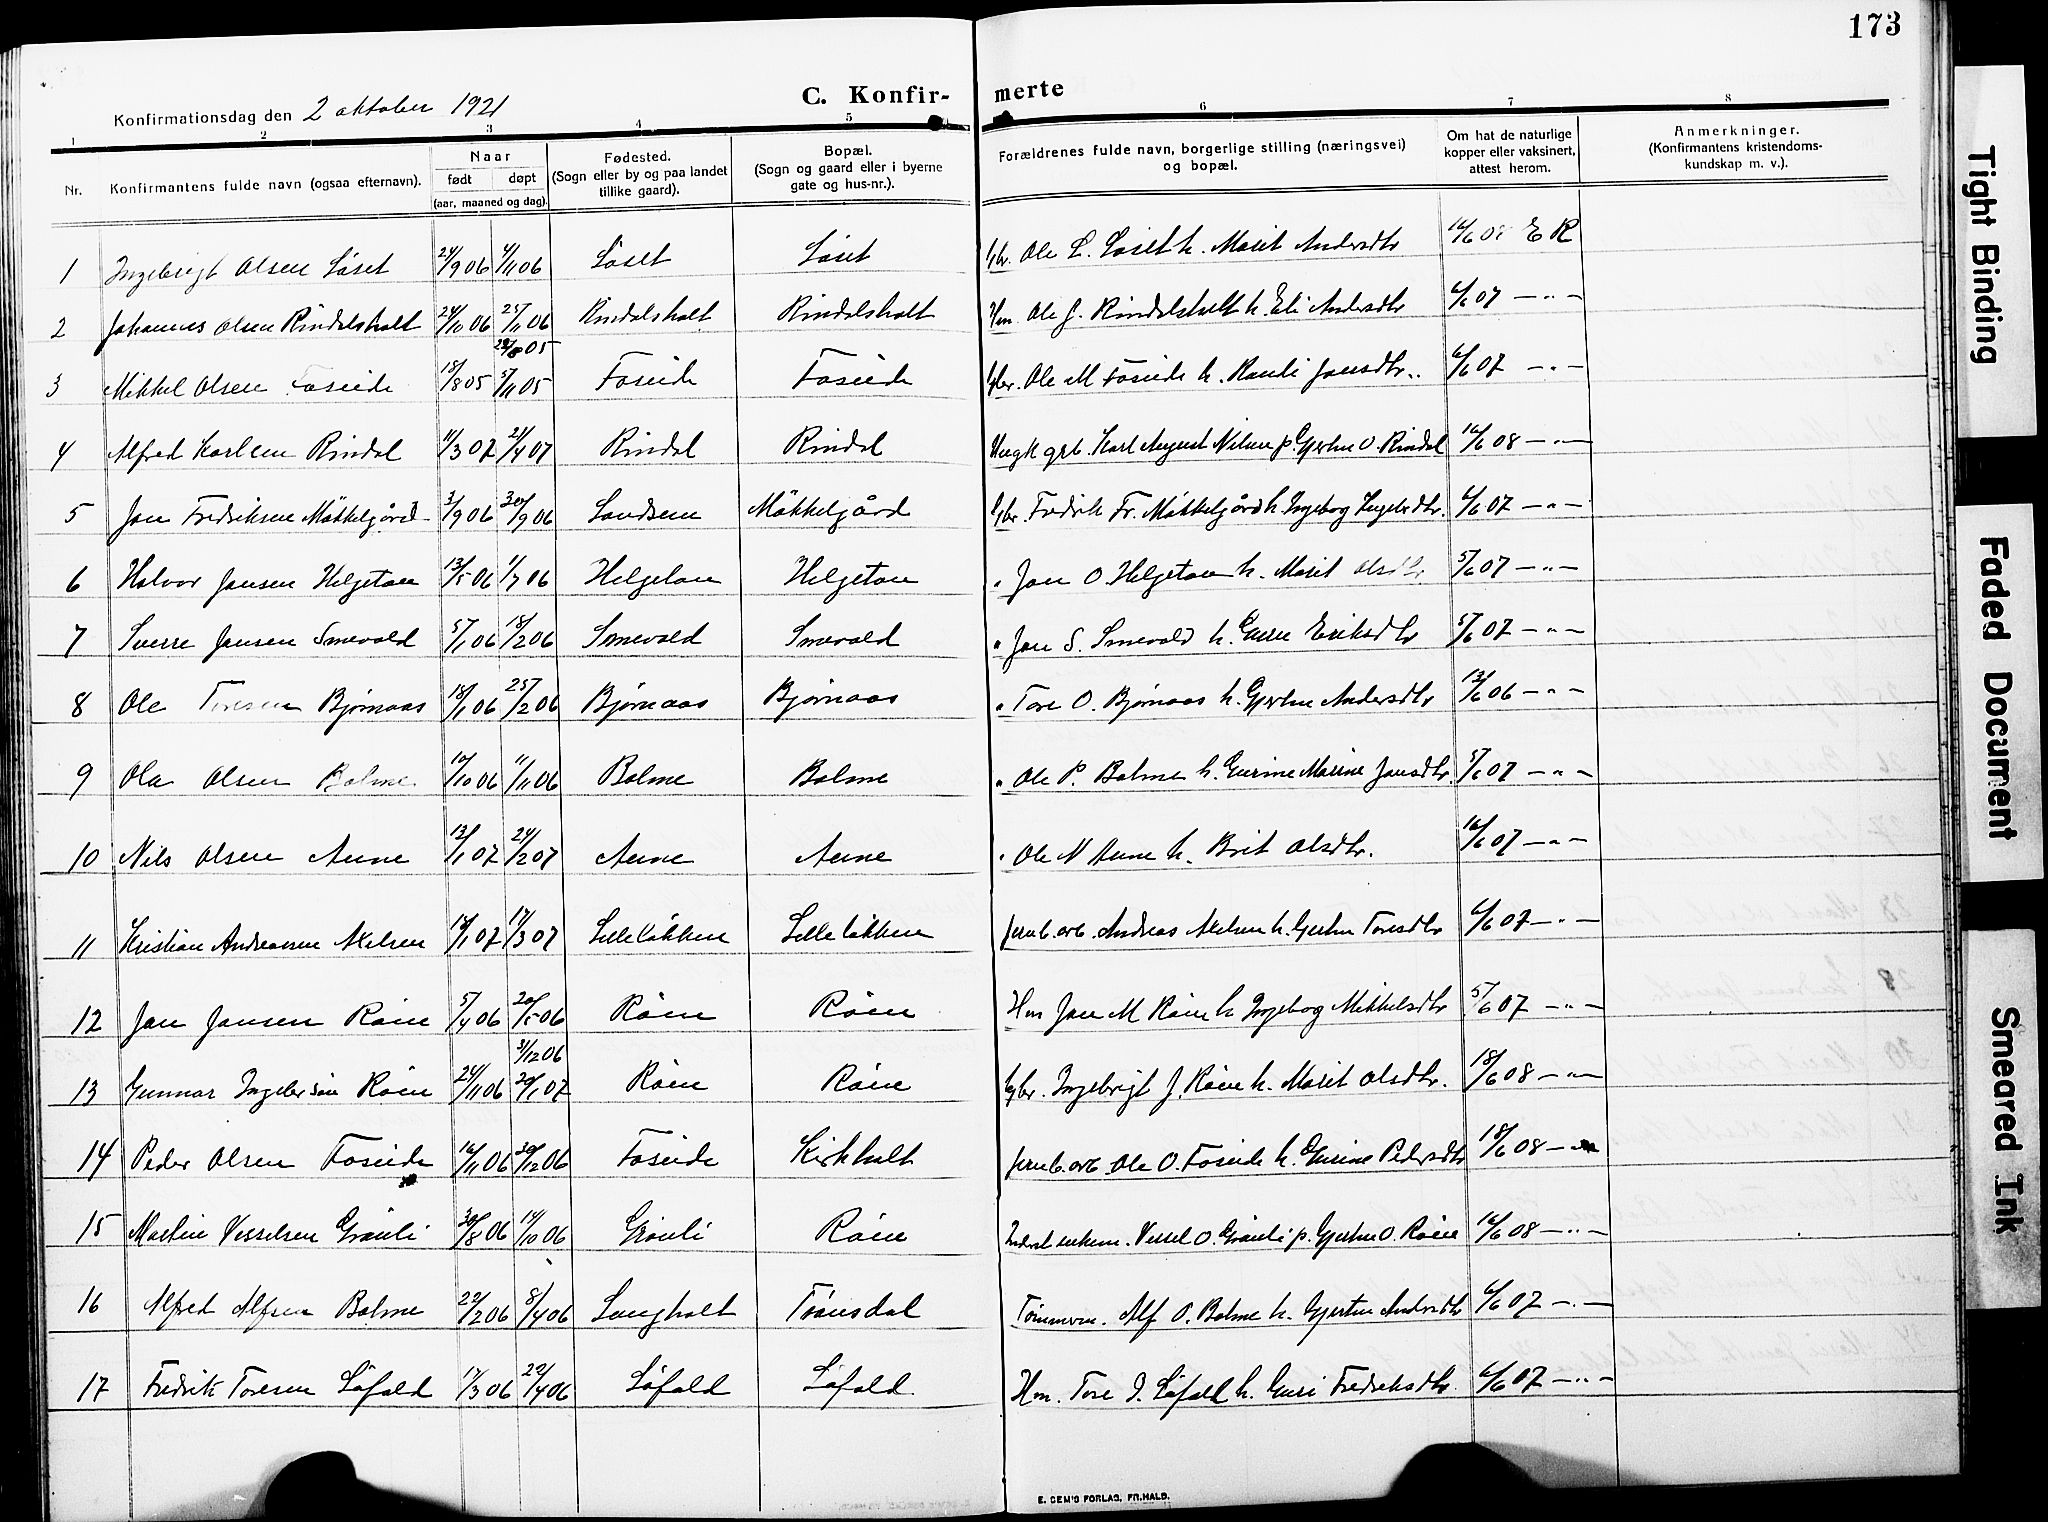 173
C. Konfir-merte
Konfirmationsdag den 2 oktober 1921
1 2 3 4 5 6 7 8
Nr.
Konfirmantens fulde navn (ogsaa efternavn).
Naar
født døpt
(aar, maaned og dag).
Fødested.
(Sogn eller by og paa landet
tillike gaard).
Bopæl.
(Sogn og gaard eller i byerne
gate og hus-nr.).
Forældrenes fulde navn, borgerlige stilling (næringsvei)
og bopæl.
Om hat de naturlige
kopper eller vaksinert,
attest herom.
Anmerkninger.
(Konfirmantens kristendoms-
kundskap m. v.).
1 Ingebrigt Olsen Løset 24/9 06 4/11 06 Løset Løset Gbr. Ole L. Løset h. Marit Andersdtr E R
2 Johannes Olsen Rindalsholt 24/10 06 25/11 06 Rindalsholt Rindalsholt Hm. Ole J. Rindalsholt h. Eli Andersdtr 6/6 07 – „ –
3 Mikkel Olsen Foseide 18/8 05 28/8 05 5/11 05 Foseide Foseide Gbr. Ole M Foseide h. Randi Jonsdtr. 6/6 07 – „ –
4 Alfred Karlsen Rindal 11/3 07 21/4 07 Rindal Rindal Ungk grb. Karl August Nilsen p. Gjertru O. Rindal 16/6 08 – „ –
5 Jon Fredriksen Møkkelgård 3/9 06 30/9 06 Landsem Møkkelgård Gbr. Fredrik Fr. Møkkelgård h. Ingebog Ingebrdtr. 6/6 07 – „ –
6 Halvor Jonsen Helgetun 13/5 06 1/7 06 Helgetun Helgetun „ Jon O. Helgetun h. Marit Olsdtr 5/6 07 – „ –
7 Sverre Jonsen Smevold 5/1 06 18/2 06 Smevold Smevold „ Jon S. Smevold h. Guru Eriksdtr 5/6 07 – „ –
8 Ole Toresen Bjørnaas 18/1 06 25/2 06 Bjørnaas Bjørnaas „ Tore O. Bjørnaas h. Gjertru Andersdtr 13/6 06 – „ –
9 Ola Olsen Bolme 10/10 06 11/11 06 Bolme Bolme „ Ole P. Bolme h. Gurine Marine Jonsdtr. 5/6 07 – „ –
10 Nils Olsen Aune 13/1 07 24/2 07 Aune Aune „ Ole N Aune h. Brit Olsdtr. 16/6 07 – „ –
11 Kristian Andreasen Akelsen 14/1 07 17/3 07 Lilleløkken Lilleløkken Jernb. arb. Andreas Akelsen h. Gjertru Toresdtr 6/6 07 – „ –
12 Jon Jonsen Røen 5/4 06 20/5 06 Røen Røen Hm Jon M Røen h Ingebog Mikkelsdtr 5/6 07 – „ –
13 Gunnar Ingebr. søn Røen 24/11 06 31/12 06 20/1 07 Røen Røen Gbr. Ingebrigt J. Røen h. Marit Olsdtr. 18/6 08 – „ –
14 Peder Olsen Foseide 16/11 06 30/12 06 Foseide Kirkholt Jernb. arb. Ole O. Foseide h. Gurine Pedersdtr 18/6 08 – „
15 Martin Vesselsen Grønli 30/8 06 14/10 06 Grønli Røen Vessel O. Grønli p. Gjertru O. Røen 16/6 08 – „ –
16 Alfred Alfsen Bolme 22/2 06 8/4 06 Langholt Trønsdal Tømmerm. Alf O. Bolme h. Gjertru Andersdtr 6/6 07 – „ –
17 Fredrik Toresen Løfald 17/3 06 22/4 06 Løfald Løfald Hm. Tore I. Løfald h. Guri Fredriksdtr. 6/6 07 – „ –
E. SEM'S FORLAG, FR.HALD.
Tight Binding
Faded Document
Smeared Ink